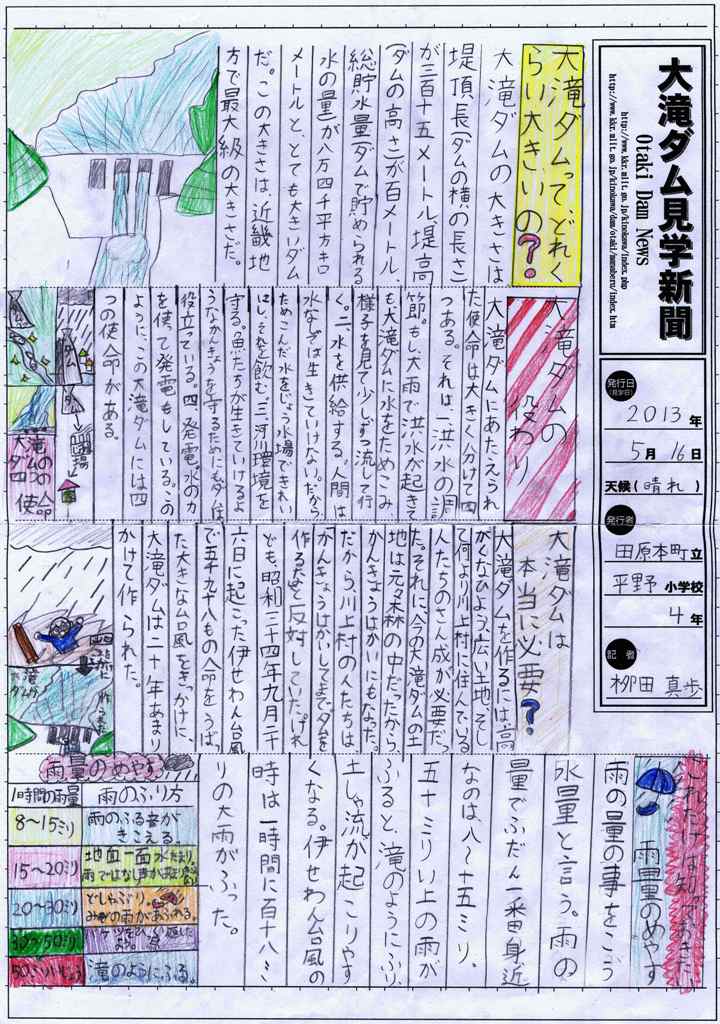 大滝ダム見学新聞
Otaki Dam News
http://www.kkr.mlit.go.jp/kinokawa/index.php
発行日
(見学日)
2013年
5月16日
天候(晴れ)
発行者
田原本町立
平野小学校
4年
記者
柳田真歩
大滝ダムってどれく
らい大きいの?
大滝ダムの大きさは
堤頂長(ダムの横の長さ)
が三百十五メートル、堤高
(ダムの高さ)が百メートル、
総貯水量(ダムで貯められる
水の量)が八万四千平方キロ
メートルと、とても大きいダム
だ。この大きさは、近畿地
方で最大級の大きさだ。
大滝ダムの
役わり
大滝ダムにあたえられ
た使命は大きく分けて四
つある。それは、一、洪水の調
節。もし、大雨で洪水が起きて
も、大滝ダムに水をためこみ
様子を見て少しずつ流して行
く。二、水を供給する。人間は
水なしでは生きていけない。だから
ためこんだ水をじょう水場できれい
にし、それを飲む。三、河川環境を
守る。魚たちが生きていけるよ
うなかんきょうを守るためにもダムは
役立っている。四、発電。水の力
を使って発電もしている。この
ように、この大滝ダムには四
つの使命がある。
ダム
大滝
ダムの
四つの
使命
大滝ダムは
本当に必要?
大滝ダムを作るには、高
がくなひよう、広い土地、そし
て何より川上村に住んでいる
人たちのさん成が必要だっ
た。それに、今の大滝ダムの土
地は元々森の中だったから、
かんきょうはかいにもなった。
だから、川上村の人たちは
かんきょうはかいしてまでダムを
作るなと反対していた。けれ
ども、昭和三十四年九月二十
六日に起こった伊せわん台風
で五千九十八もの命をうばっ
た大きな台風をきっかけに、
大滝ダムは二十年あまり
かけて作られた。
これだけは知っておきたい
雨量のめやす
雨の量の事をこう
水量と言う。雨の
量でふだん一番身近
なのは、八〜十五ミリ、
五十ミリい上の雨が
ふると、滝のようにふり、
土しゃ流が起こりやす
くなる。伊せわん台風の
時は一時間に百十八ミ
リの大雨がふった。
雨量のめやす
1時間の雨量 雨のふり方
8〜15ミリ 雨のふる音が
きこえる
15〜20ミリ 地面一面水たまり。
20〜30ミリ どしゃぶり。
みぞの雨があふれる。
30〜50ミリ
50ミリいじょう 滝のようにふる。